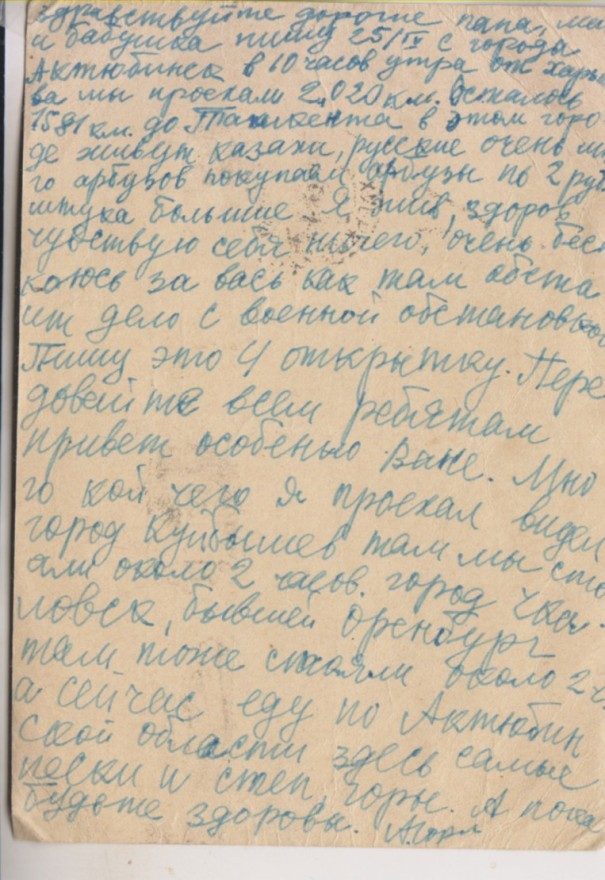 здравствуйте дорогие папа, ма
и бабушка пишу 25/IX с города
Актюбинск в 10 часов утра от Харь
ва мы проехали 2,020 км. осталось
1581 км. до Ташкента в этом горо
де живут казахи, русские очень мн
го арбузов покупаем арбузы по 2 руб
штука большие Я, жив, здоров
чувствую себя ничего, очень бес
коюсь за вась как там обста
ит дело с военной обстановкой
Пишу это 4 открытку. Пере
довейте всем ребятам
привет особенью Ване. Мно
го кой чего я проехал видел
город Куйбышев там мы сто
яли около 2 часов. город Чка-
ловск, бывшей Оренбург
там тоже стояли около 2 ч
а сейчас еду по Актюбин
ской области здесь самые
пески и степ, горы. А пока
будьте здоровы.